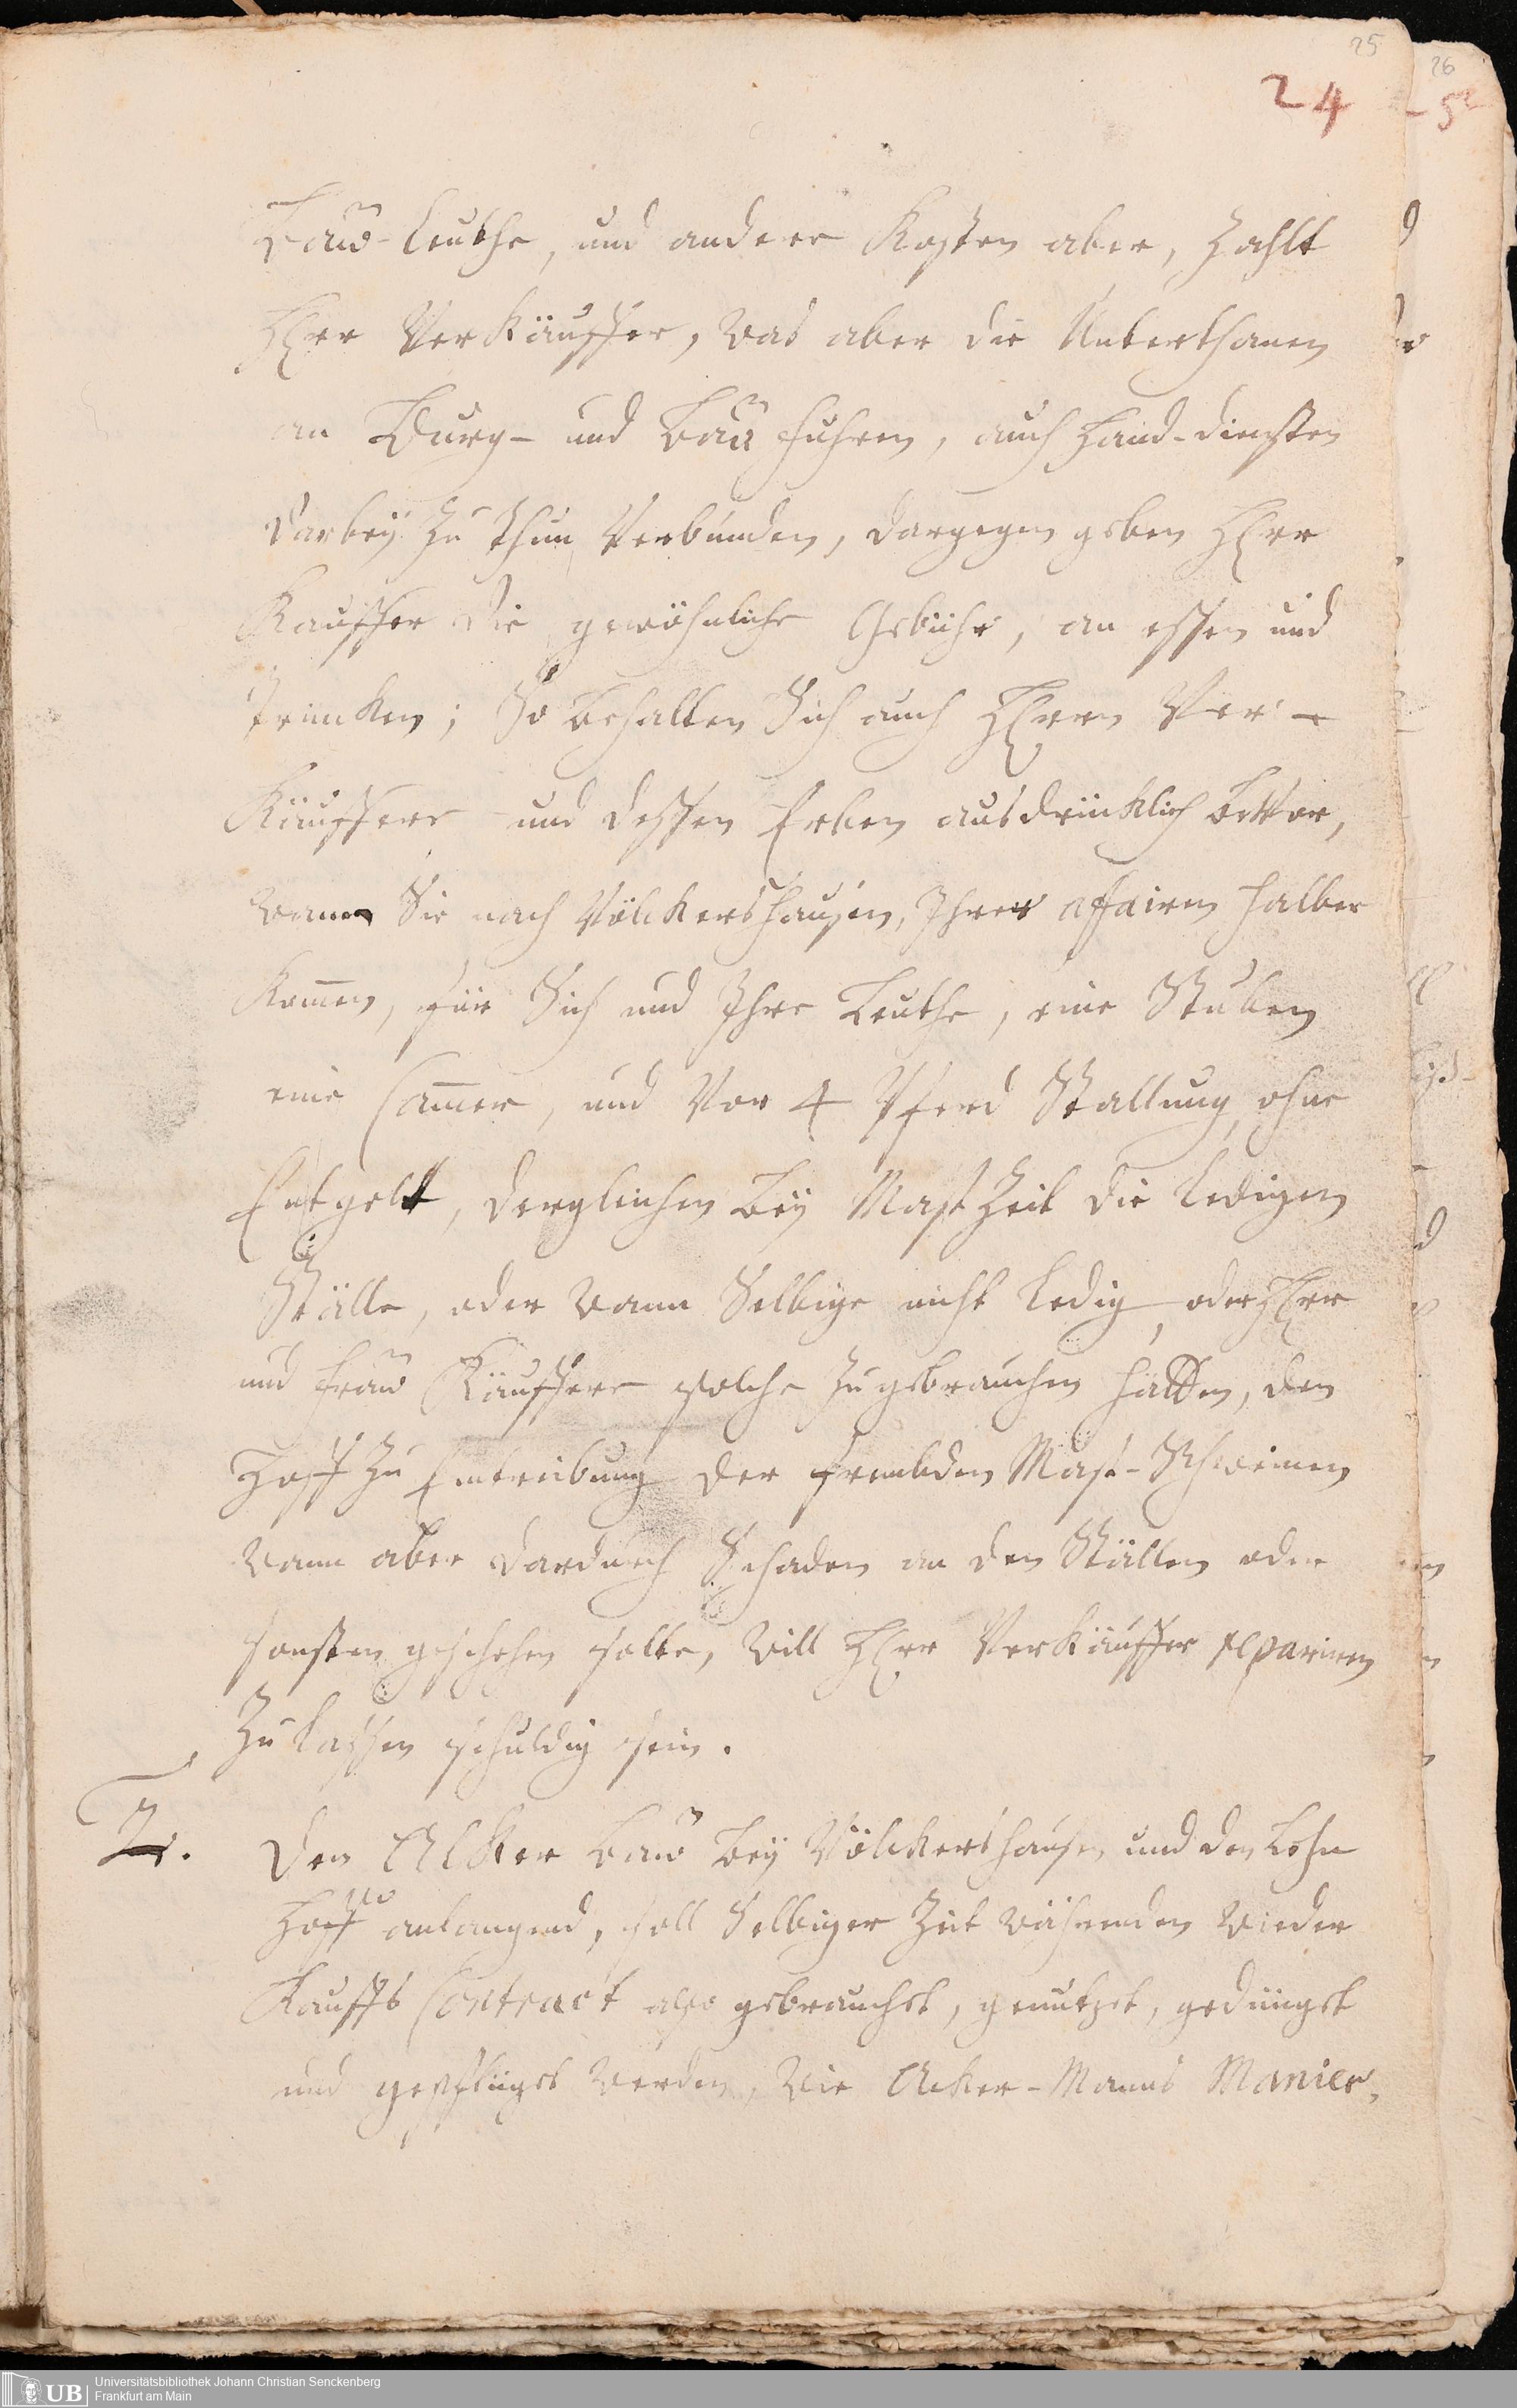 25
24
26
Baw-Leuthe, und andere Kosten aber, Zahlt
Herr Verkäuffer, was aber die Unterthanen
an Burg- und Bau fuhren, auch Hand-diensten
darbeÿ Zu Thun Verbunden, dargegen geben Herr
Kauffer die gewöhnliche Gebühr, an essen und
trincken; So behalten Sich auch Herrn Ver-
Käuffere und dessen Erben ausdrücklich bevor,
wann Sie nach Völckershausen, Ihrer affairen halber
Kom̄en, für Sich und Ihre Leuthe, eine Stuben
eine Cam̄er, und Vor 4 Pferd Stallung, ohne
Entgelt, dergleichen beÿ Mast Zeit die Ledigen
Ställe, oder wann Selbige nicht Ledig, oder Herr
und Fraw Käuffere solche Zu gebrauchen hätten, den
Hoff Zu Eintreibung der frembden Mast-Schweinen
wann aber dardurch Schaden an den Ställen oder
sonsten geschehen solte, will Herr Verkäuffer repariren
Zu Lassen schuldig sein.
2. Den Acker baw beÿ Völckershausen und den Lehn
Hoff anlangend, soll Selbiger Zeit währenden wieder
Kauffs Contract also gebrauchet, genutzet, gedünget
und gepflüget werden, wie Acker-Manns Manier,
UB Universitätsbibliothek Johann Christian Senckenberg
Frankfurt am Main